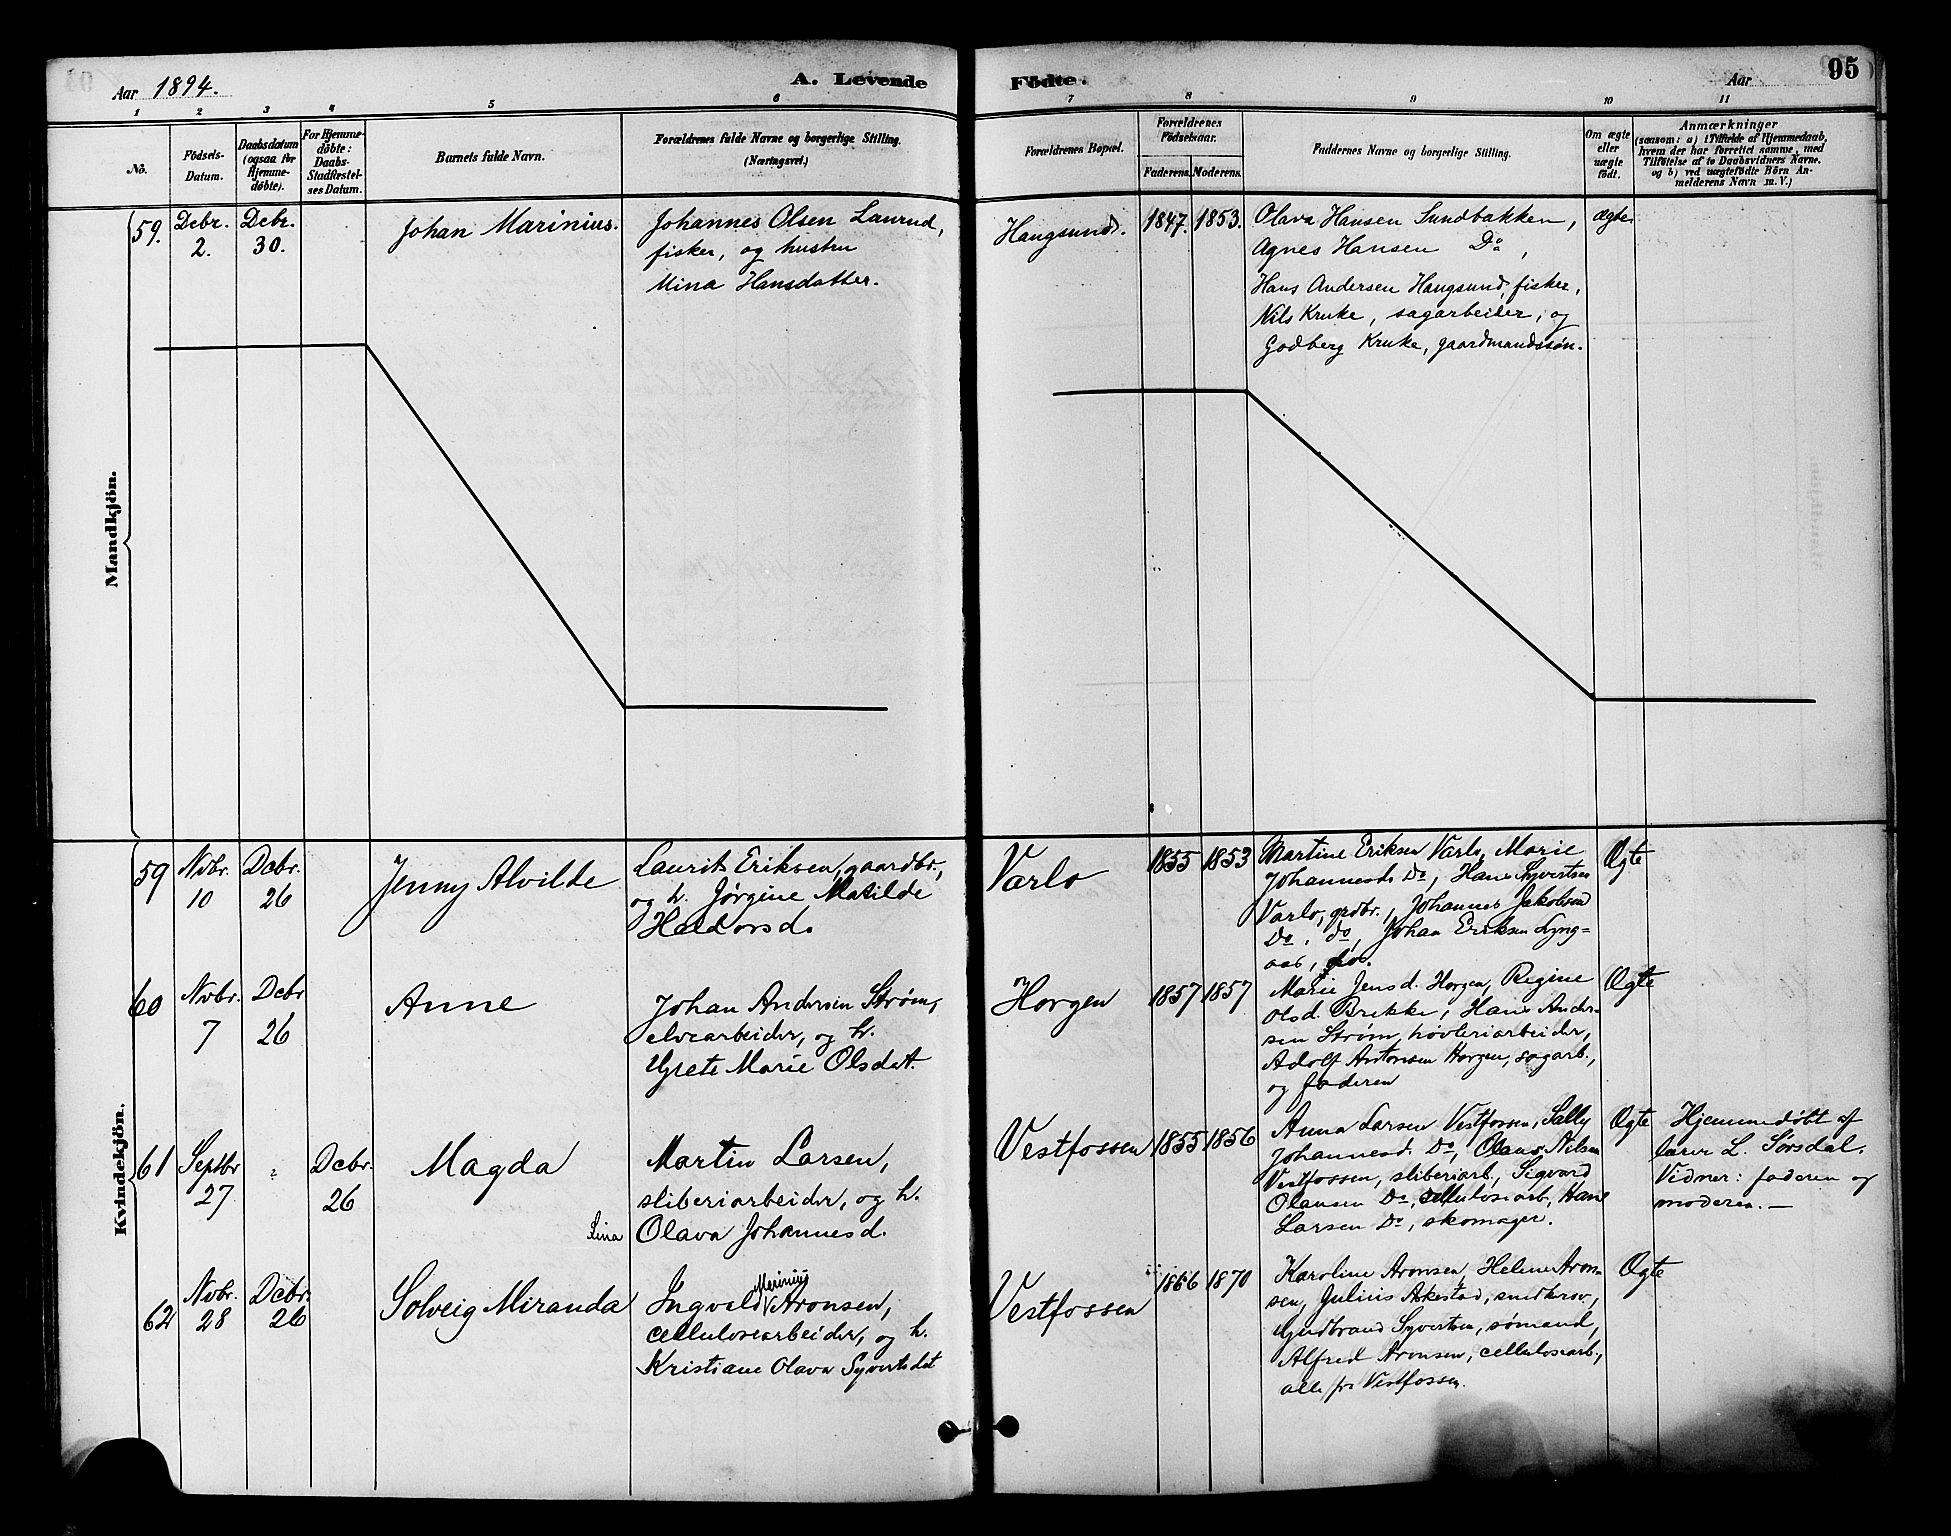 Aar 1894.
A. Levende
Födte.
Aar
95
1 2 3 4 5 6 7 8 9 10 11
No.
Födsels-
Datum.
Daabsdatum
(ogsaa for
Hjemme-
döbte).
For Hjemme-
döbte:
Daabs-
Stadfæstel-
ses Datum.
Barnets fulde Navn.
Forældrenes fulde Navne og borgerlige Stilling.
(Næringsvei.)
Forældrenes Bopæl.
Forældrenes
Födselsaar.
Faderens. Moderens.
Faddernes Navne og borgerlige Stilling.
Om ægte
eller
uægte
födt.
Anmærkninger
(saasom: a) i Tilfælde af Hjemmedaab,
hvem der har forrettet samme, med
Tilföielse af to Daabsvidners Navne.
og b) ved uægtefödte Börn An-
melderens Navn m. V.)
Mandkjön.
59.
Debr.
2.
Debr.
30.
Johan Marinius.
Johannes Olsen Laurud,
fisker, og hustru
Mina Hansdatter.
Haugsund.
1847.
1853.
Olava Hansen Sundbakken,
Agnes Hansen Do,
Hans Andersen Haugsund, fisker,
Nils Kruke, sagarbeider, og
Godberg Kruke, gaardmandssøn.
ægte
Kvindekjön.
59
Nvbr.
10
Dcbr.
26
Jenny Alvilde
Laurits Eriksen, gaardbr.,
og h. Jørgine Matilde
Heldorsd.
Varlo
1855
1853
Martine Eriksen Varlo, Marie
Johannesd. Do, Hans Syvertsen
Varlo, grdbr., Johannes Jakobsen
Do, do, Johan Eriksen Lyng-
aas, do.
Ægte
60
Nvbr.
7
Dcbr
26
Anne
Johan Andersen Strøm,
elvearbeider, og h.
Grete Marie Olsdat.
Horgen
1857
1857
Marie Jensd. Horgen, Regine
Olsd. Brekke, Hans Ander-
sen Strøm, høvleriarbeider,
Adolf Antonsen Horgen, sagarb.,
og faderen
Ægte
61
Septbr
27
"
Dcbr.
26
Magda
Martin Larsen,
sliberiarbeider, og h.
Lina Olava Johannesd.
Vestfossen
1855
1856
Anna Larsen Vestfossen, Sally
Johannesd. Do, Olaus Nilsen
Vestfossen, sliberiarb., Sigvard
Olausen Do, cellulosearb., Hans
Larsen Do, skomager.
Ægte
Hjemmedøbt af
lærer L. Sørsdal.
Vidner: faderen og
moderen. —
62
Nvbr.
28
Dcbr.
26
Solveig Miranda
Ingvald Marinius Aronsen,
cellulosearbeider, og h.
Kristiane Olava Syvertsdat
Vestfossen
1866
1870
Karoline Aronsen, Helene Aron-
sen, Julius Askestad, smedkrov,
Gudbrand Syvertsen, sømand,
Alfred Aronsen, cellulosearb.,
alle fr Vestfossen.
Ægte